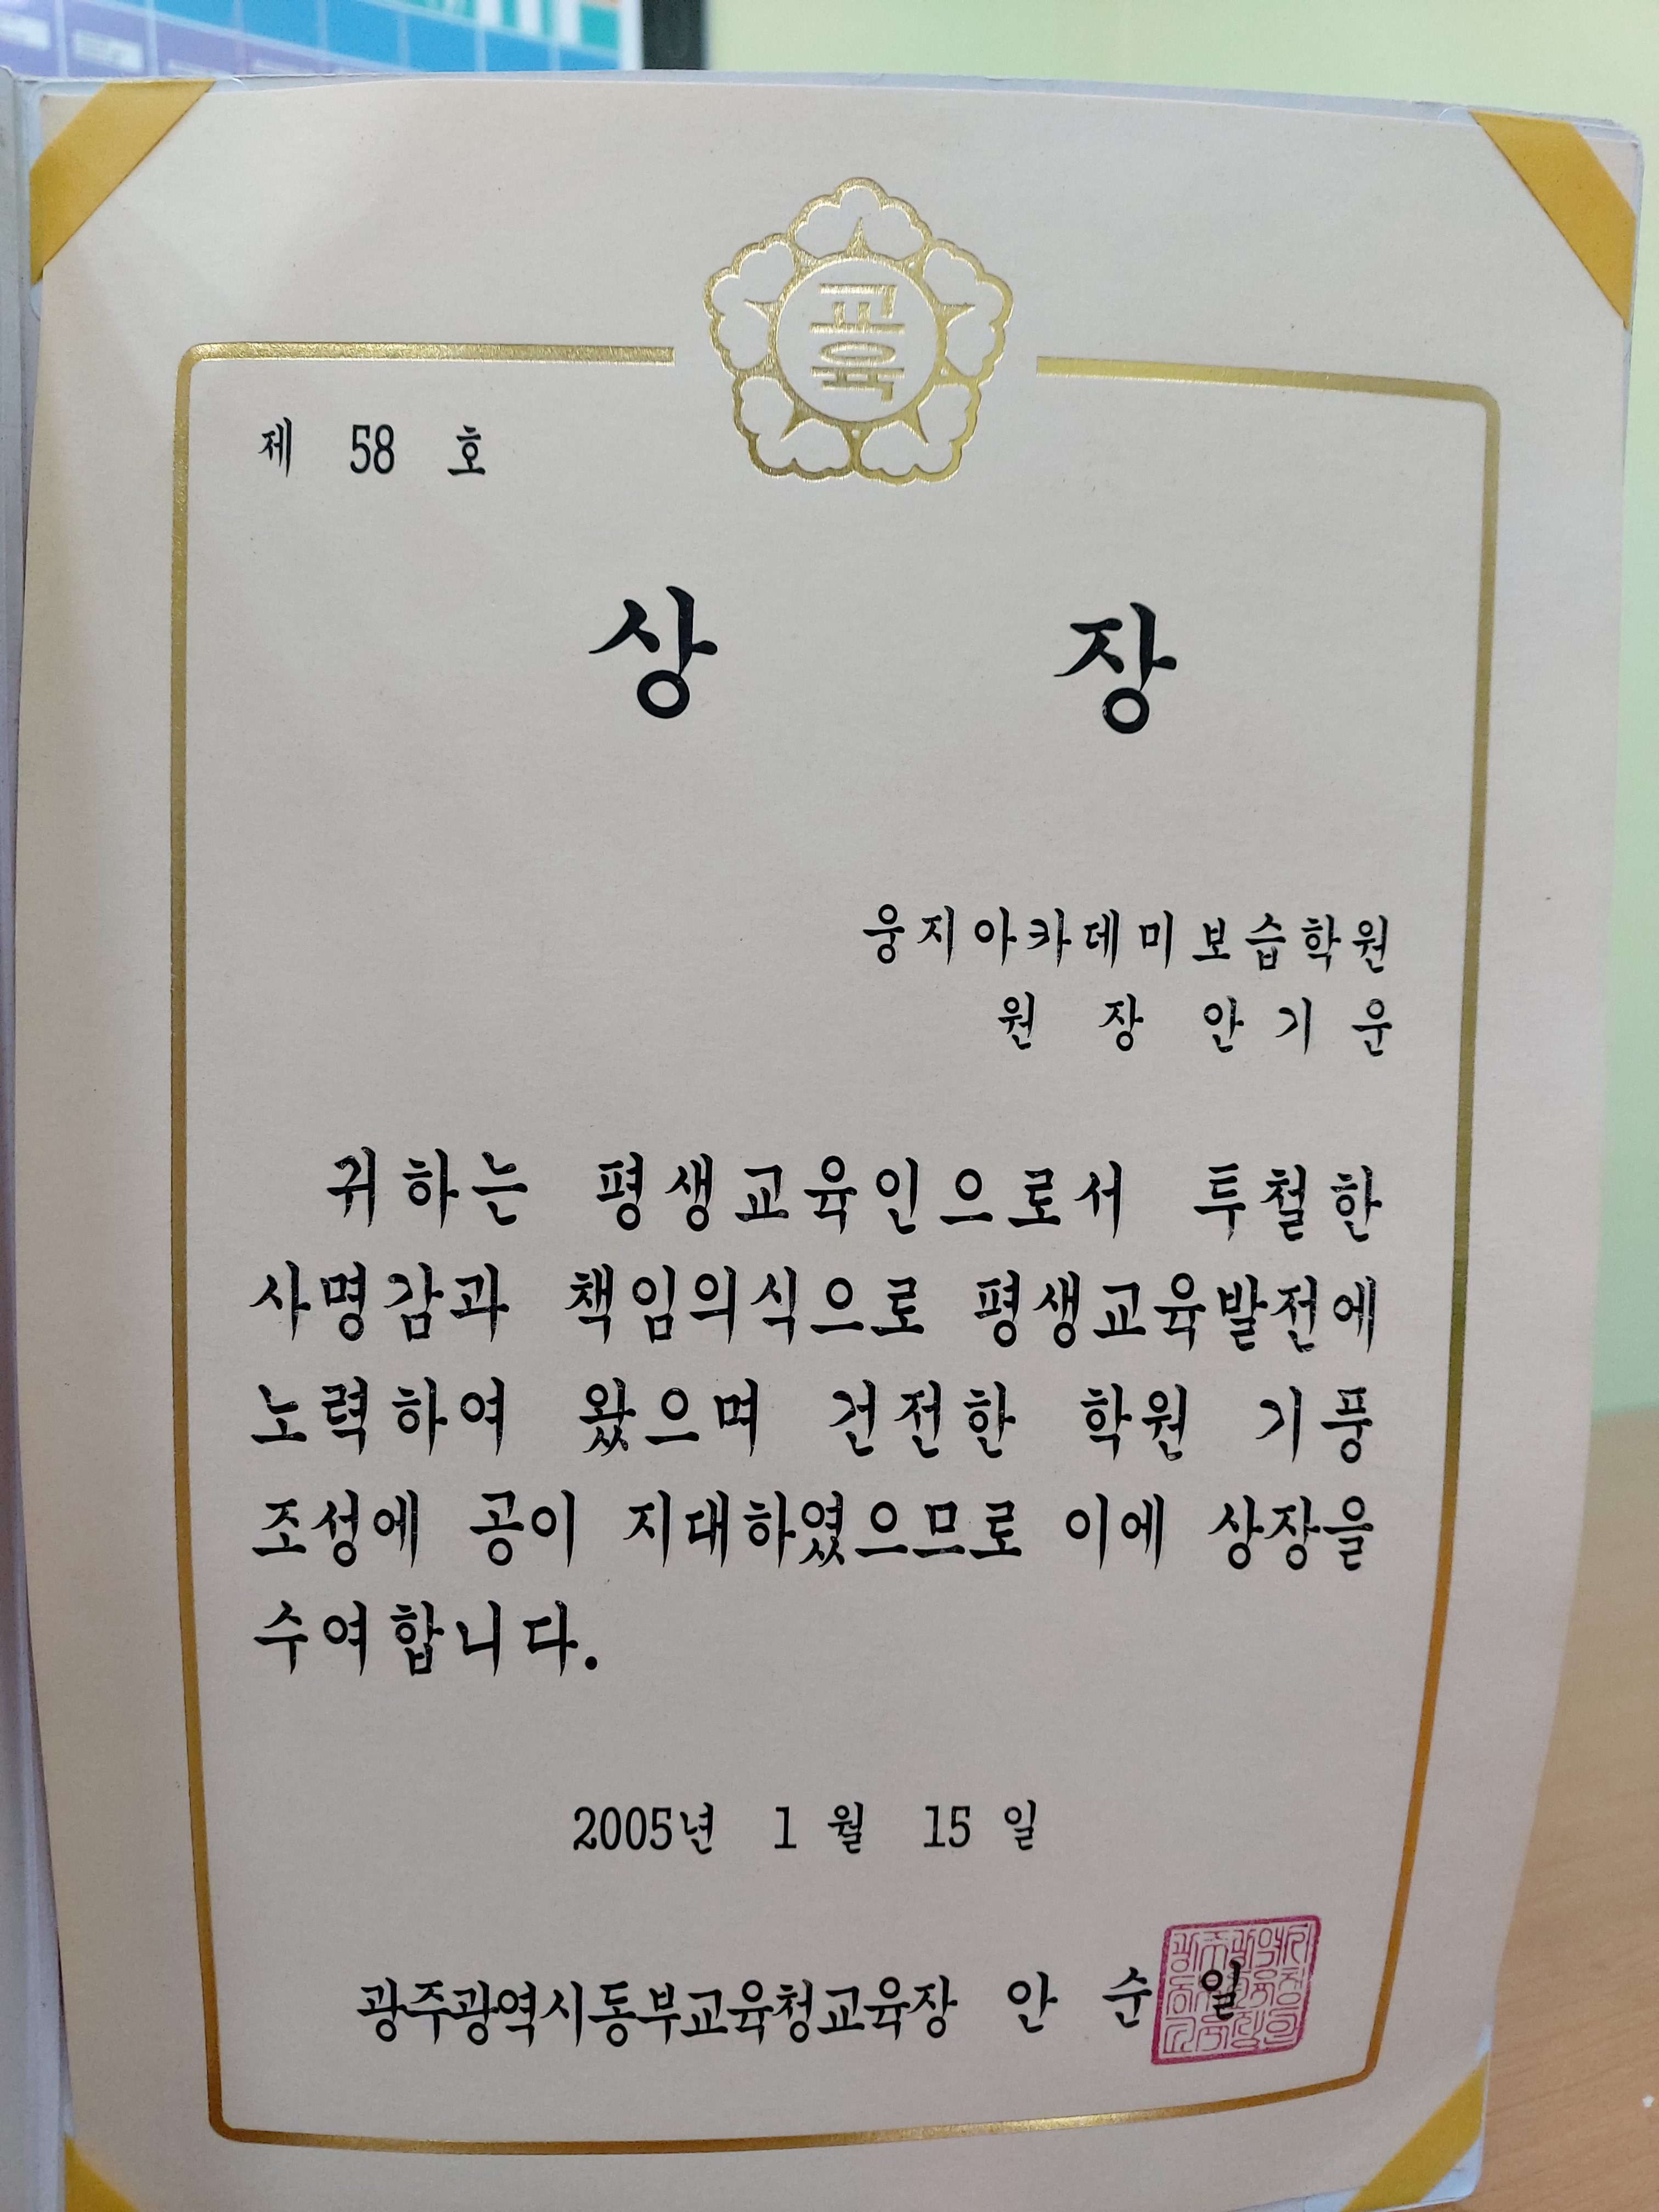 교육
제 58 호
상 장
웅지아카데미보습학원
원 장 안 기 운
귀하는 평생교육인으로서 투철한
사명감과 책임의식으로 평생교육발전에
노력하여 왔으며 건전한 학원 기풍
조성에 공이 지대하였으므로 이에 상장을
수여합니다.
2005년 1 월 15 일
광주광역시동부교육청교육장 안 순 일